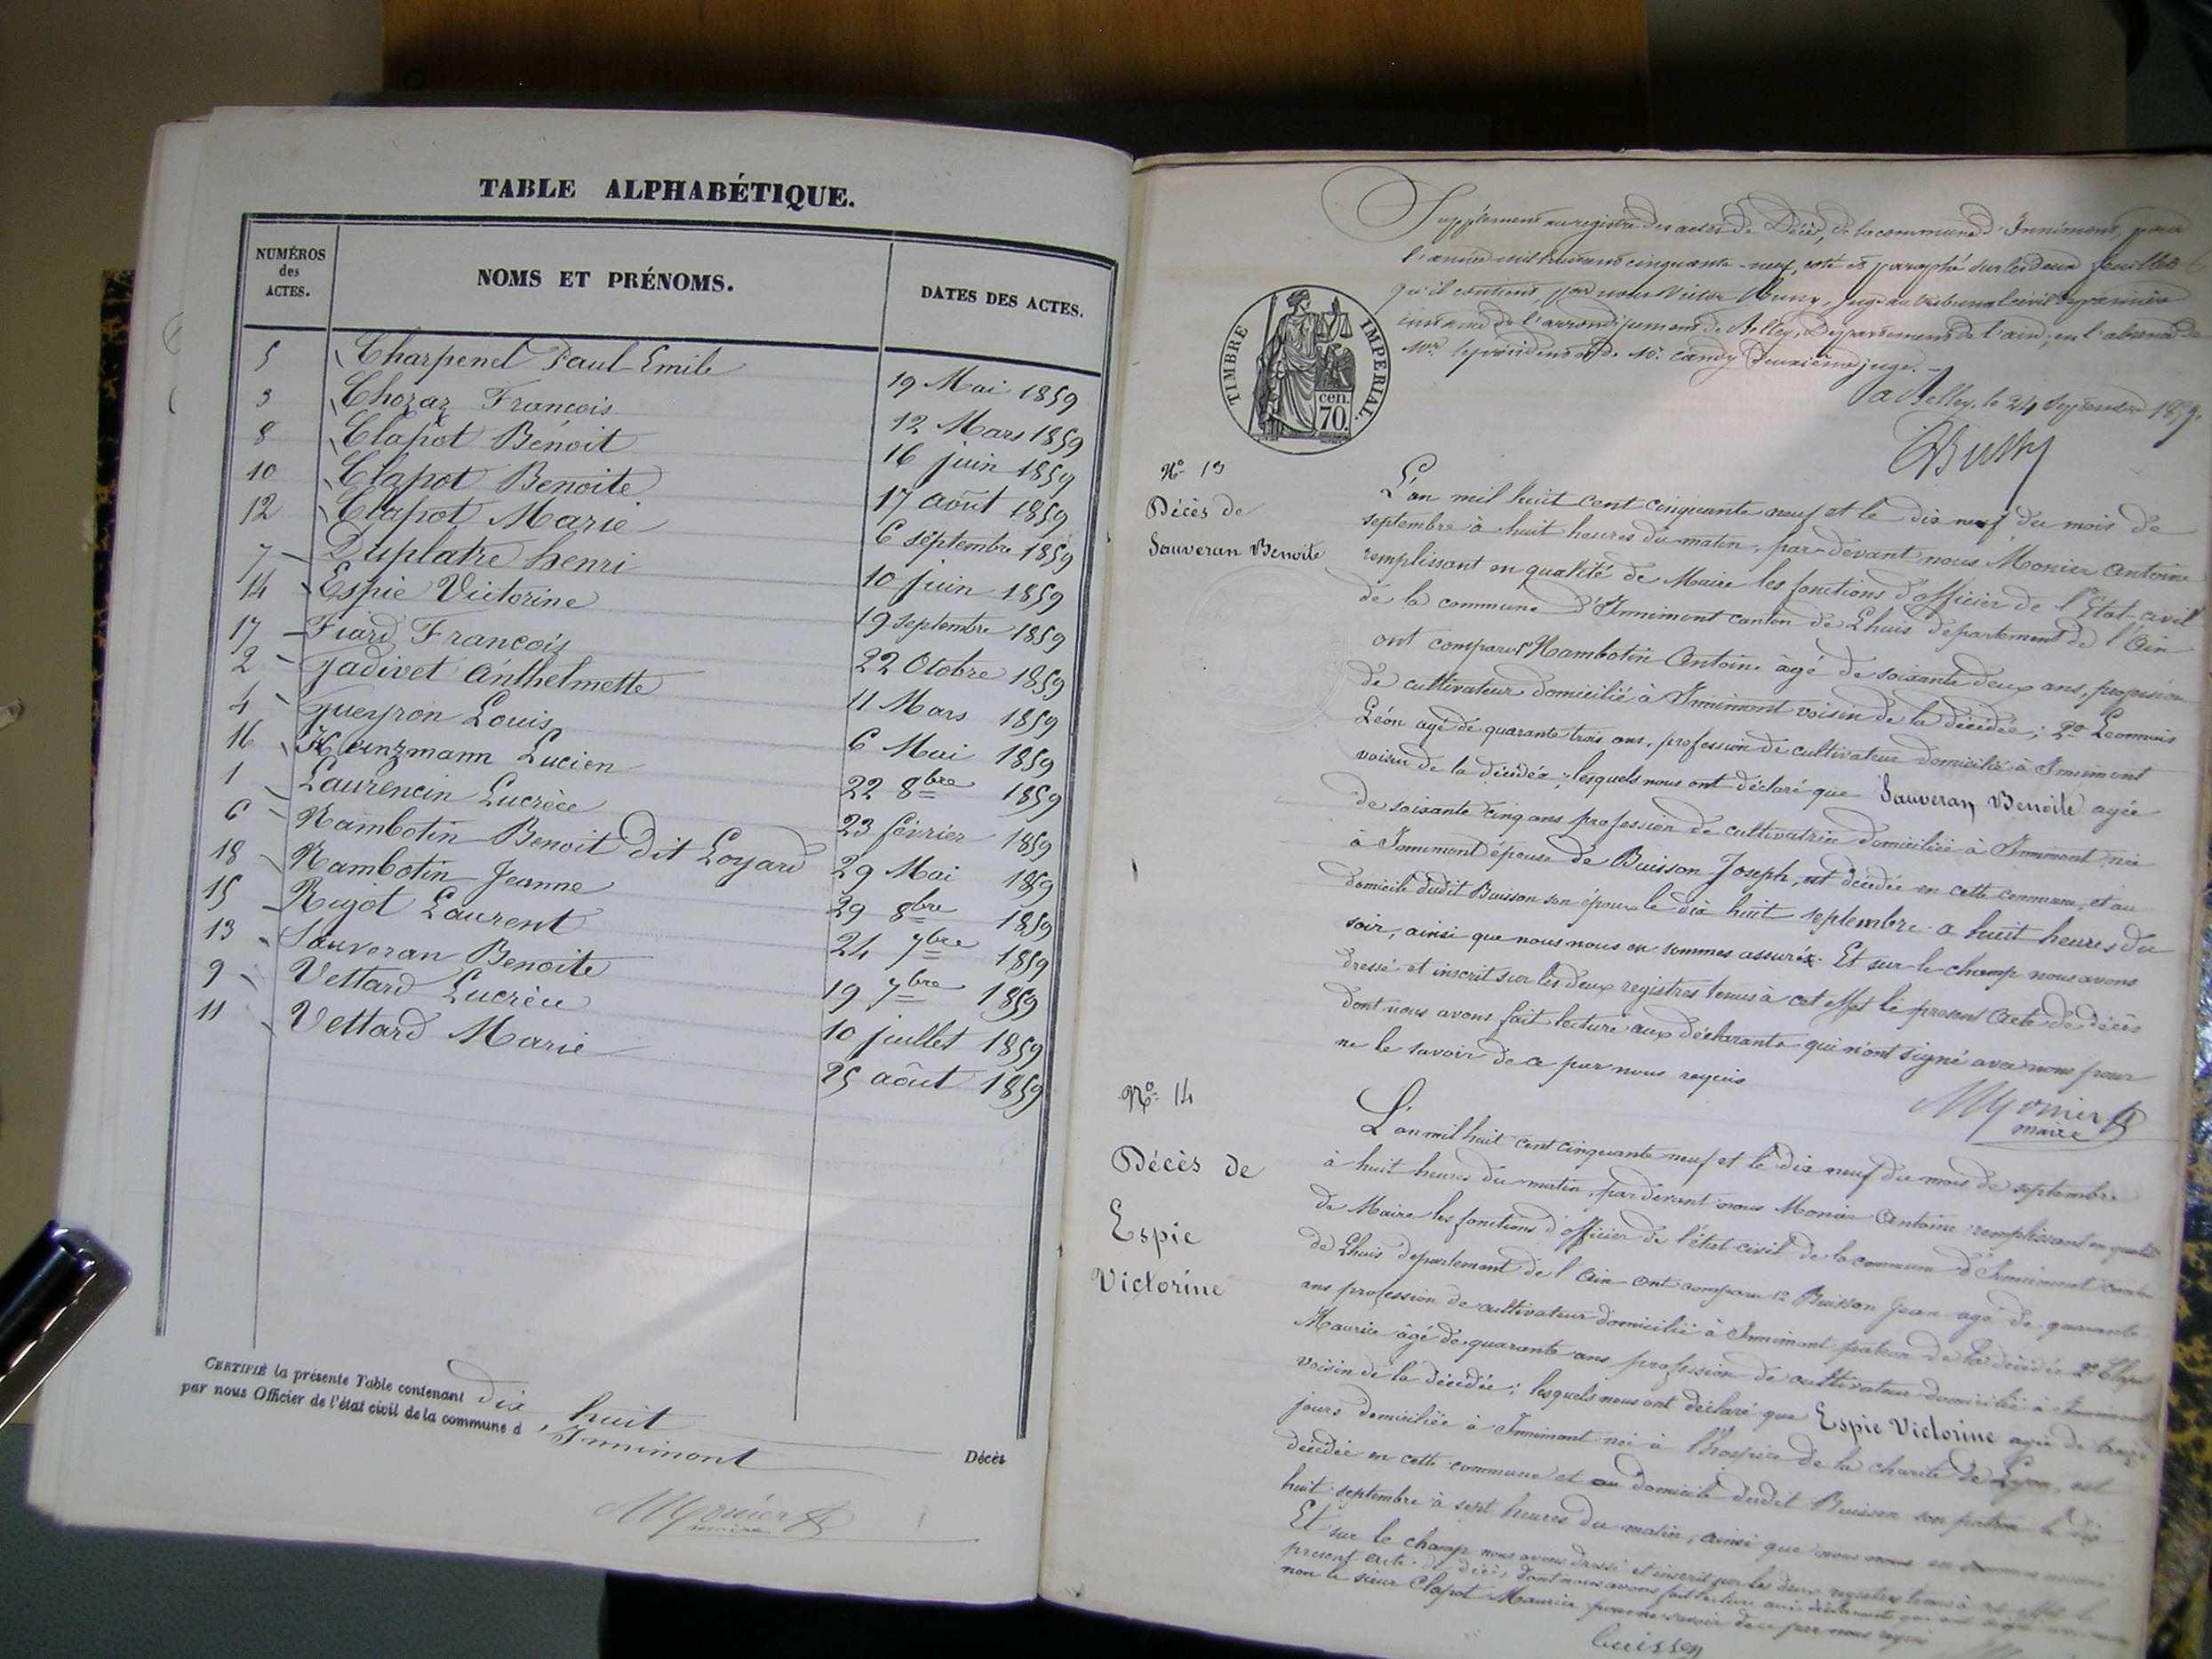 TABLE ALPHABÉTIQUE.
NUMÉROS
des
ACTES.
NOMS ET PRÉNOMS.
DATES DES ACTES.
5 Charpenel Paul Emile 19 Mai 1859
3 Chozaz Francois 12 Mars 1859
8 Clapot Bénoit 16 juin 1859
10 Clapot Benoite 17 août 1859
12 Clapot Marie 6 séptembre 1859
7 Duplatre henri 10 juin 1859
14 Espie Victorine 19 septembre 1859
17 Fiard François 22 Otobre 1859
2 Gadivet Anthelmette 11 Mars 1859
4 Gueyron Louis 6 Mai 1859
16 Heinzmann Lucien 22 8bre 1859
1 Laurencin Lucrèce 23 février 1859
6 Rambotin Benoit dit Loyard 29 Mai 1859
18 Rambotin Jeanne 29 8bre 1859
15 Rigot Laurent 24 7bre 1859
13 Sauveran Benoite 19 7bre 1859
9 Vettard Lucrèce 10 juillet 1859
11 Vettard Marie 25 aôut 1859
CERTIFIÉ la présente Table contenant dix huit Décès
par nous Officier de l'état civil de la commune d'Innimont
Monier
maire
Supplément au registre des actes de Décès, de la commune d'Innimont, pour
l'année mil huit cent cinquante-neuf, coté et paraphé sur les deux feuillets
qu'il contient, par nous Victor, juge au tribunal civil de première
instance de l'arrondissement de Belley, Département de l'ain, en l'absence de
Mr. le président et de Mr. Candy deuxième juge.
a Belley, le 24 Septembre 1859.
TIMBRE IMPERIAL.
cen.
70.
No 13
Décès de
Sauveran Benoite
L'an mil huit cent cinquante neuf et le dix neuf du mois de
septembre à huit heures du matin, par devant nous Monier Antoine
remplissant en qualité de Maire les fonctions d'officier de l'Etat-civil
de la commune d'Innimont canton de Lhuis département de l'Ain
ont comparu 1o Rambotin Antoine âgé de soixante deux ans, profession
de cultivateur domicilié à Innimont voisin de la décédée; 2o
Léon agé de quarante trois ans, profession de cultivateur domicilié à Innimont
voisin de la décédée; lesquels nous ont déclaré que Sauveran Benoite agée
de soixante cinq ans profession de cultivatrice domiciliée à Innimont née
à Innimont épouse de Buisson Joseph, est décédée en cette commune, et au
domicile dudit Buisson son époux le dix huit septembre a huit heures du
soir, ainsi que nous nous en sommes assurés. Et sur le champ nous avons
dressé et inscrit sur les deux registres tenus à cet effet le présent acte de décès
dont nous avons fait lecture aux déclarants qui n'ont signé avec nous pour
ne le savoir de ce par nous requis
Monier
maire
No 14
Décès de
Espie
Victorine
L'an mil huit cent cinquante neuf et le dix neuf du mois de septembre
à huit heures du matin, par devant nous Monier Antoine remplissant en qualité
de Maire les fonctions d'officier de l'état civil de la commune d'Innimont canton
de Lhuis département de l'Ain ont comparu 1o Buisson Jean agé de quarante
ans profession de cultivateur domicilié à Innimont patron de la décédée 2o Clapot
Maurice âgé de quarante ans profession de cultivateur domicilié à Innimont
voisin de la décédée; lesquels nous ont déclaré que Espie Victorine agée de
jours domiciliée à Innimont née à l'hospice de la charité de Lyon, est
décédée en cette commune et au domicile dudit Buisson son patron le dix
huit septembre à sept heures du matin, ainsi que nous nous en sommes assuré
Et sur le champ nous avons dressé et inscrit sur les deux registres tenus à cet effet le
présent acte de décès dont nous avons fait lecture aux déclarants qui ont signé avec nous
non le sieur Clapot Maurice pour ne savoir de ce par nous requis
buisson